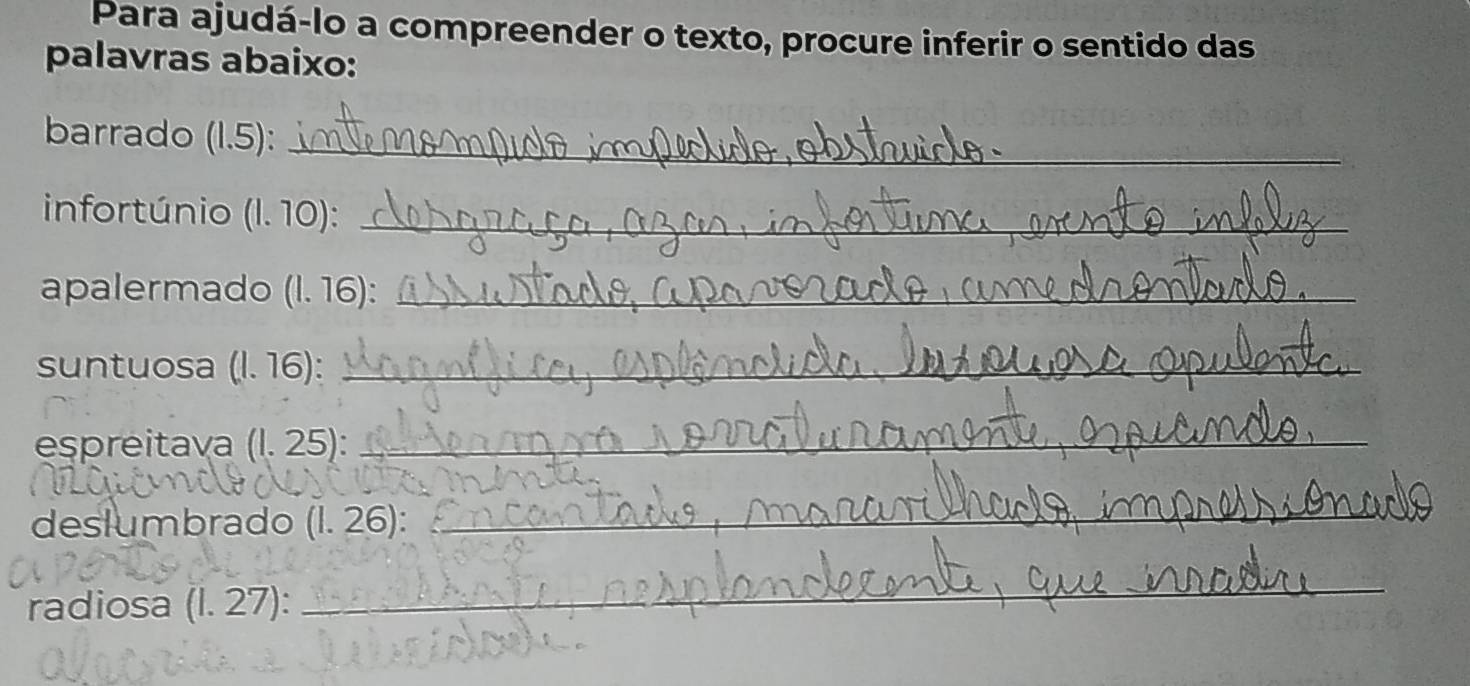 Para ajudá-lo a compreender o texto, procure inferir o sentido das
palavras abaixo:
barrado (l.5): interrompido impedido, obstruido.
infortúnio (l. 10): desgraça, azar, infortuna, evento infeliz
apalermado (l. 16): assustado, apavorado, amedrontado.
suntuosa (l. 16): Magnifica, esplêndida, luxuosa opulenta
espreitava (l. 25): observava sorrateiramente, espiando,
vigiando
deslumbrado (l. 26): Encantado, maravilhado, impressionado
a ponto de perder o foco
radiosa (l. 27): brilhante, resplandecente, que irradia
alegria e felicidade.